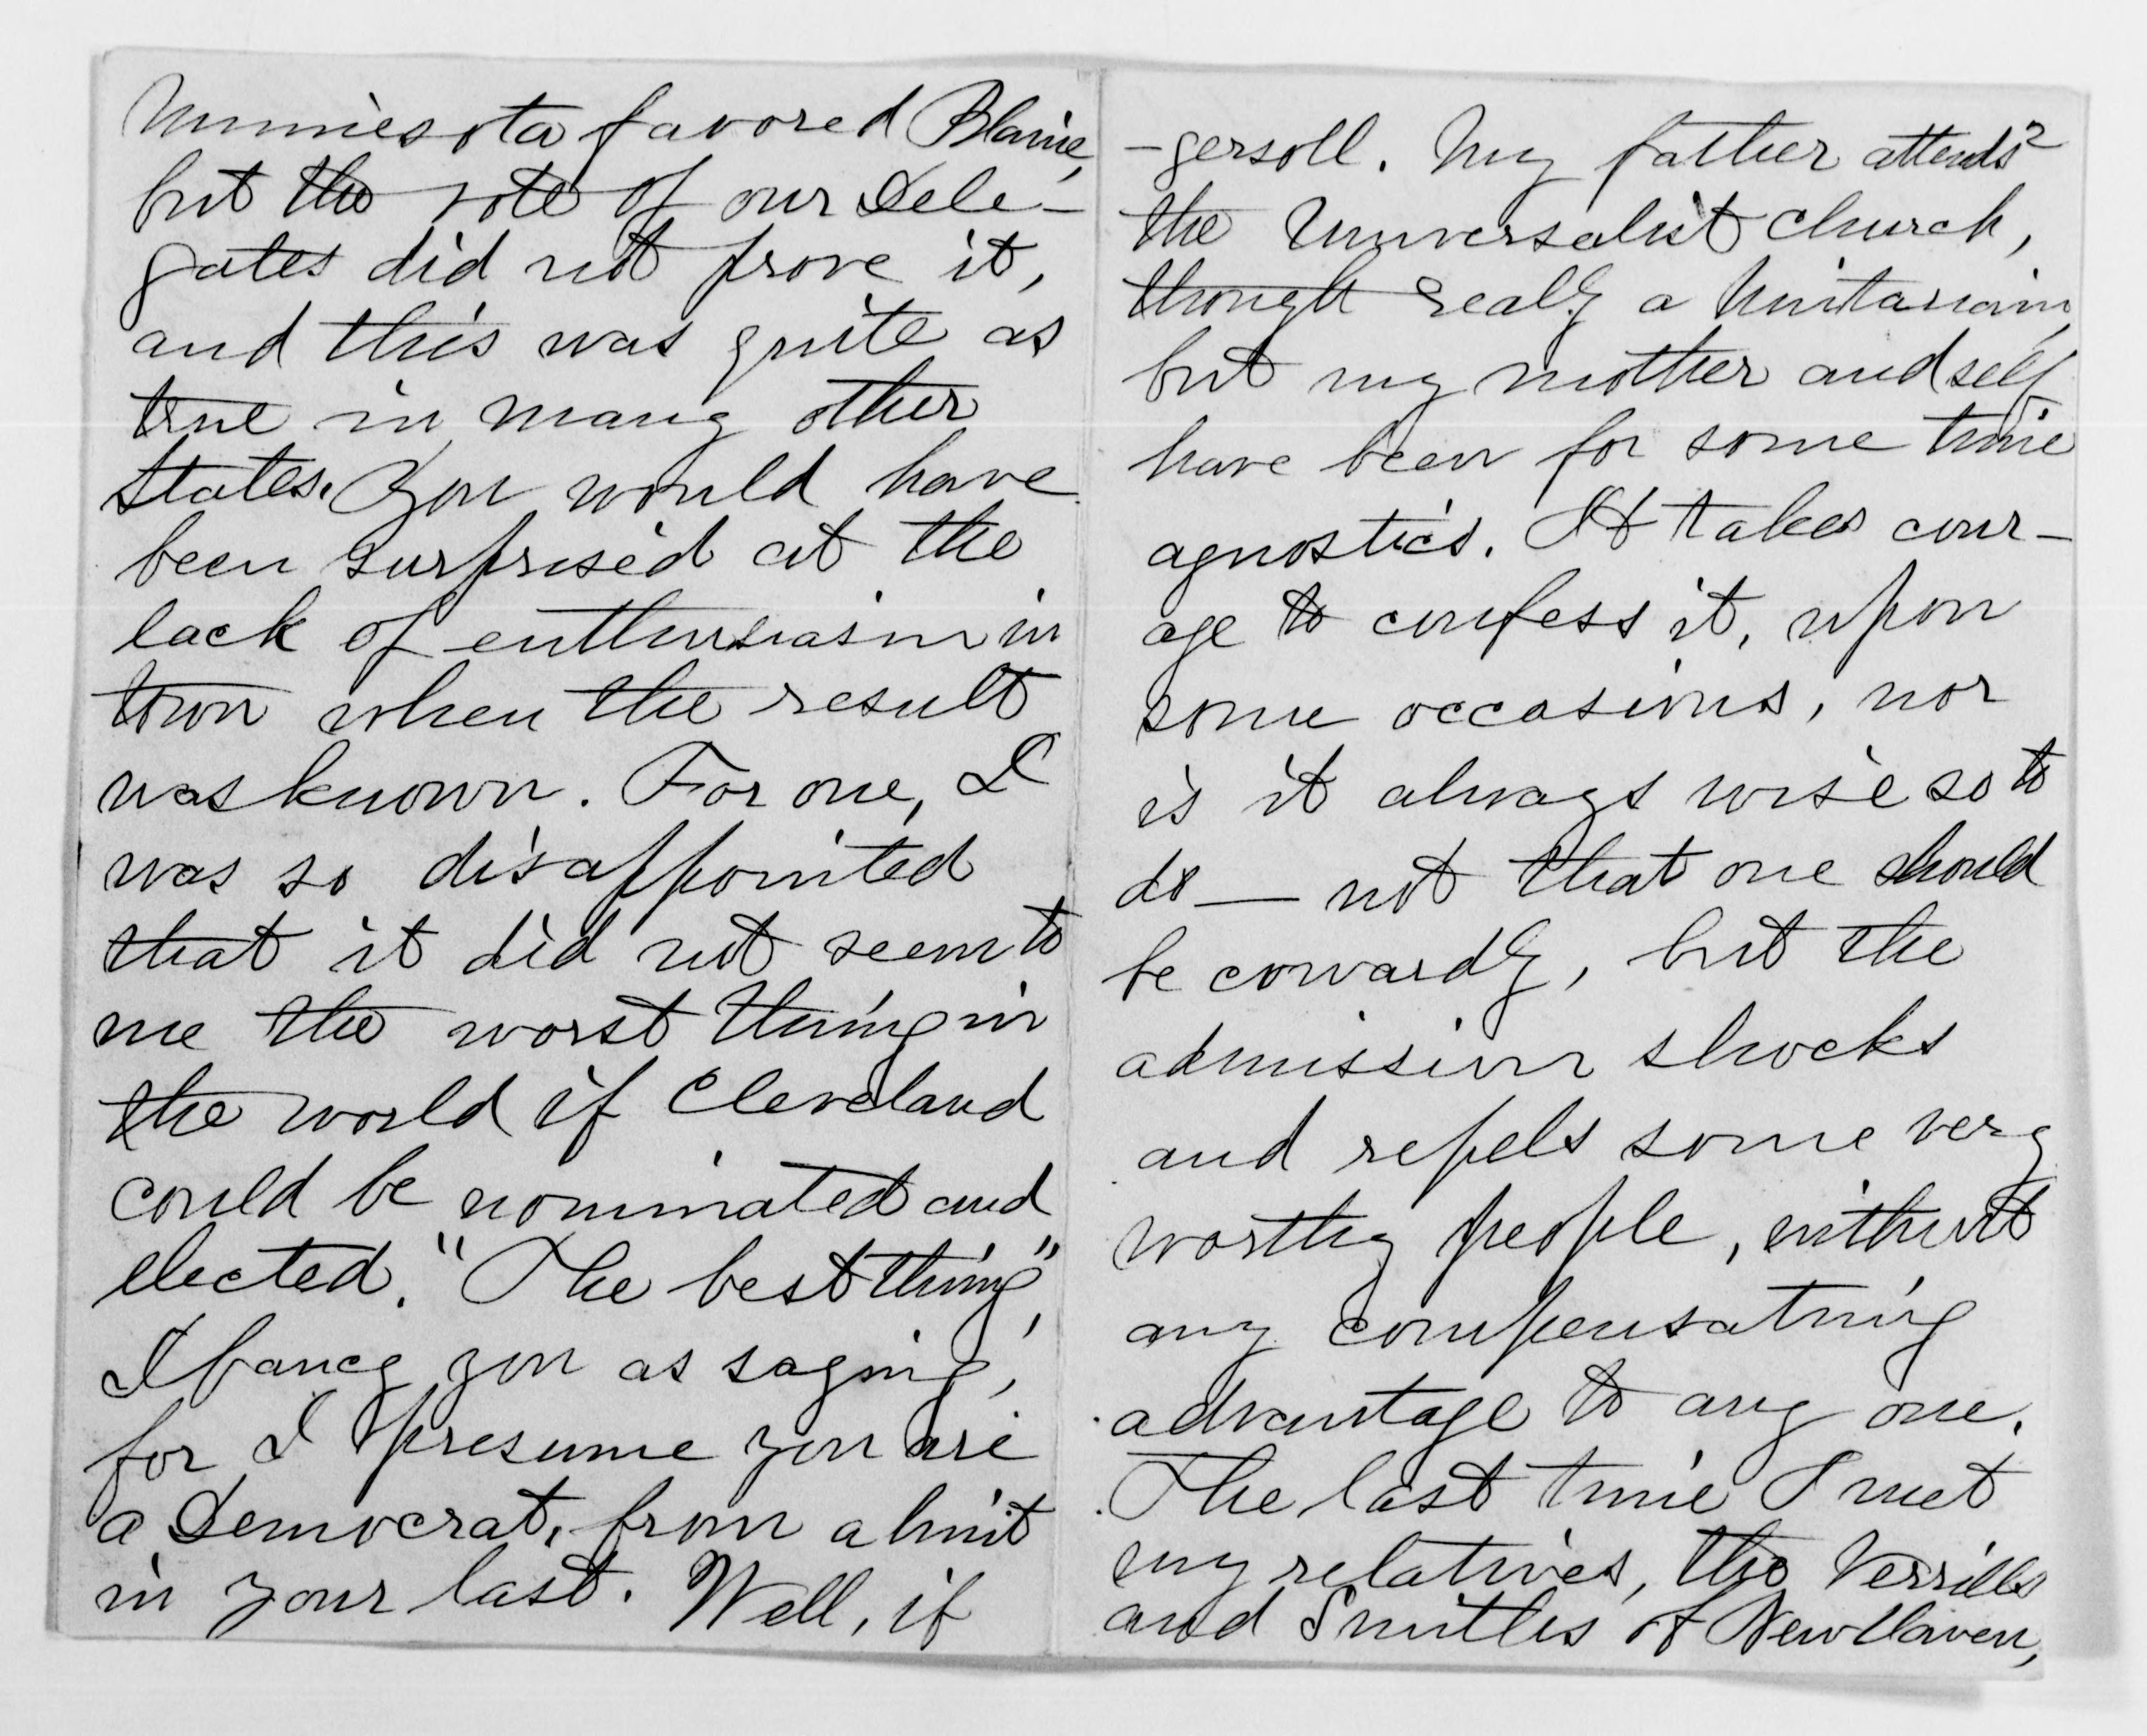 Minnesota favored Blaine,
but the vote of our Dele-
gates did not prove it,
and this was quite as
true in many other
States. You would have
been surprised at the
lack of enthusiasm in
town when the result
was known. For one, I
was so disappointed
that it did not seem to
me the worst thing in
the world if Cleveland
could be nominated and
elected. "The best thing",
I fancy you as saying,
for I presume you are
a Democrat, from a hint
in your last. Well, if
-gersoll. My father attends 2
the Universalist church,
though really a Unitarian,
but my mother and self
have been for some time
agnostics. It takes cour-
age to confess it, upon
some occasions, nor
is it always wise so to
do — not that one should
be cowardly, but the
admission shocks
and repels some very
worthy people, without
any compensating
advantage to any one.
The last time I met
my relatives, the Verrills
and Smiths of New Haven,